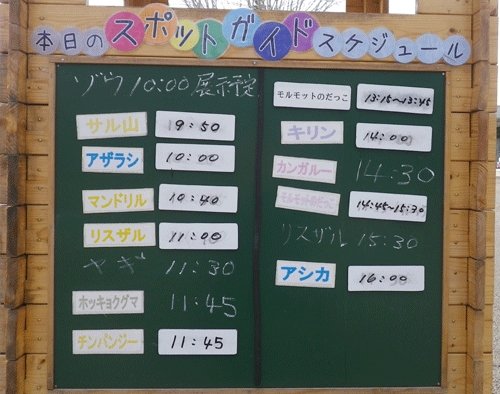 本日のスポットガイドスケジュール
ゾウ 10:00 展示予定
サル山 9:50
アザラシ 10:00
マンドリル 10:40
リスザル 11:00
ヤギ 11:30
ホッキョクグマ 11:45
チンパンジー 11:45
モルモットのだっこ 13:15~13:45
キリン 14:00
カンガルー 14:30
モルモットのだっこ 14:45~15:30
リスザル 15:30
アシカ 16:00